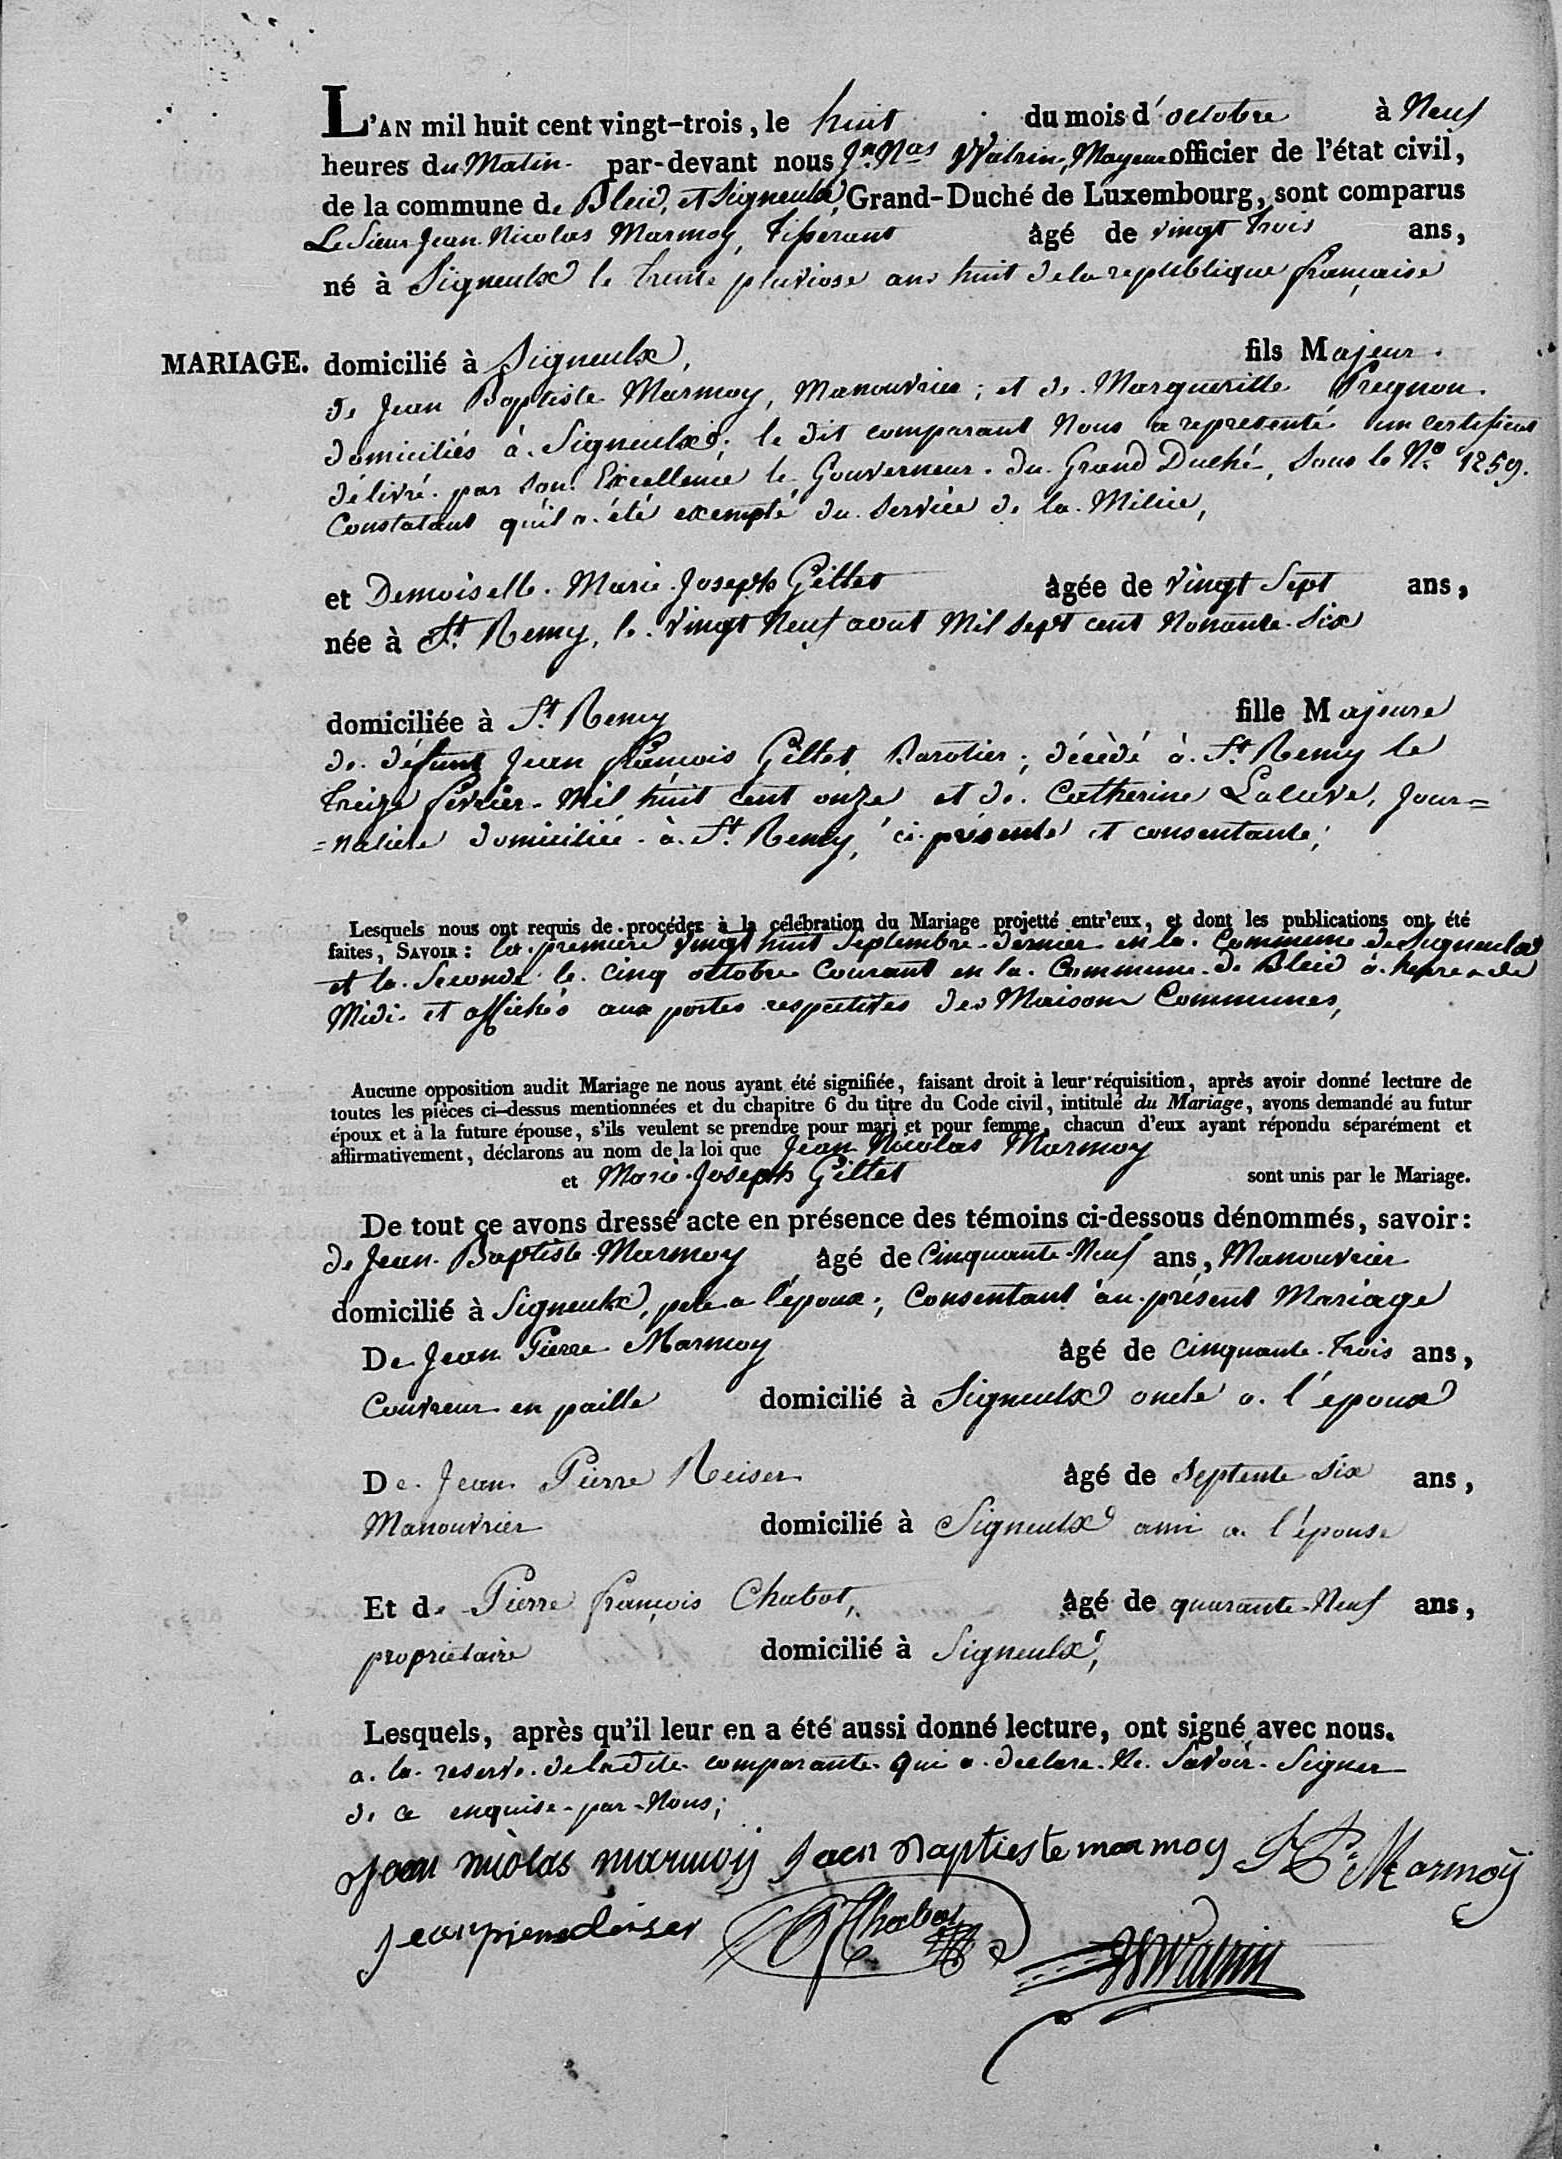 L'AN mil huit cent vingt-trois, le huit du mois d'octobre à Neuf
heures du Matin par-devant nous Jn. Nas Watrin, Mayeur officier de l'état civil,
de la commune de Bleid, et Signeulx, Grand-Duché de Luxembourg, sont comparus
Le Sieur Jean Nicolas Marmoy, tisserant âgé de vingt trois ans,
né à Signeulx le trente pluviose an huit de la republique française
MARIAGE. domicilié à Signeulx, fils Majeur
de Jean Baptiste Marmoy, Manouvrier; et de Margueritte Pregnon
domiciliés à Signeulx; le dit comparant Nous a representé un certificat
délivré par son Excellence le Gouverneur du Grand Duché, sous le No. 1259.
Constatant qu'il a été exempté du service de la Milice,
et Demoiselle Marie Joseph Gillet âgée de vingt Sept ans,
née à St. Remy, le vingt Neuf aout Mil sept cent Nonante Six
domiciliée à St. Remy fille Majeure
de défunt Jean françois Gillet, décèdé à St. Remy le
treize février Mil huit cent onze et de Catherine, Jour=
=naliere domiciliée à St. Remy, ci présente et consentante;
Lesquels nous ont requis de procéder à la célébration du Mariage projetté entr'eux, et dont les publications ont été
faites, SAVOIR: la premiere vingt huit Septembre dernier en la Commune de Signeulx
et la Seconde le cinq octobre Courant en la Commune de Bleid à heure de
Midi et affichés aux portes respectives des Maisons Communes,
Aucune opposition audit Mariage ne nous ayant été signifiée, faisant droit à leur réquisition, après avoir donné lecture de
toutes les pièces ci-dessus mentionnées et du chapitre 6 du titre du Code civil, intitulé du Mariage, avons demandé au futur
époux et à la future épouse, s'ils veulent se prendre pour mari et pour femme, chacun d'eux ayant répondu séparément et
affirmativement, déclarons au nom de la loi que Jean Nicolas Marmoy
et Marie Joseph Gillet sont unis par le Mariage.
De tout ce avons dressé acte en présence des témoins ci-dessous dénommés, savoir:
de Jean Baptiste Marmoy âgé de Cinquante Neuf ans, Manouvrier
domicilié à Signeulx, pere a l'époux; Consentant au présent Mariage
De Jean Pierre Marmoy âgé de cinquante trois ans,
Couvreur en paille domicilié à Signeulx oncle a l'epoux
De Jean Pierre Reiser âgé de Septente Six ans,
Manouvrier domicilié à Signeulx ami a l'épouse
Et de Pierre françois Chabot, âgé de quarante Neuf ans,
proprietaire domicilié à Signeulx,
Lesquels, après qu'il leur en a été aussi donné lecture, ont signé avec nous.
a la reserve de ladite comparante qui a declare Ne Savoir Signer
de ce enquise par Nous;
jean nicolas marmoy jaen Baptieste marmoy J P Marmoÿ
jean pierre Reiser PF Chabot JN Watrin